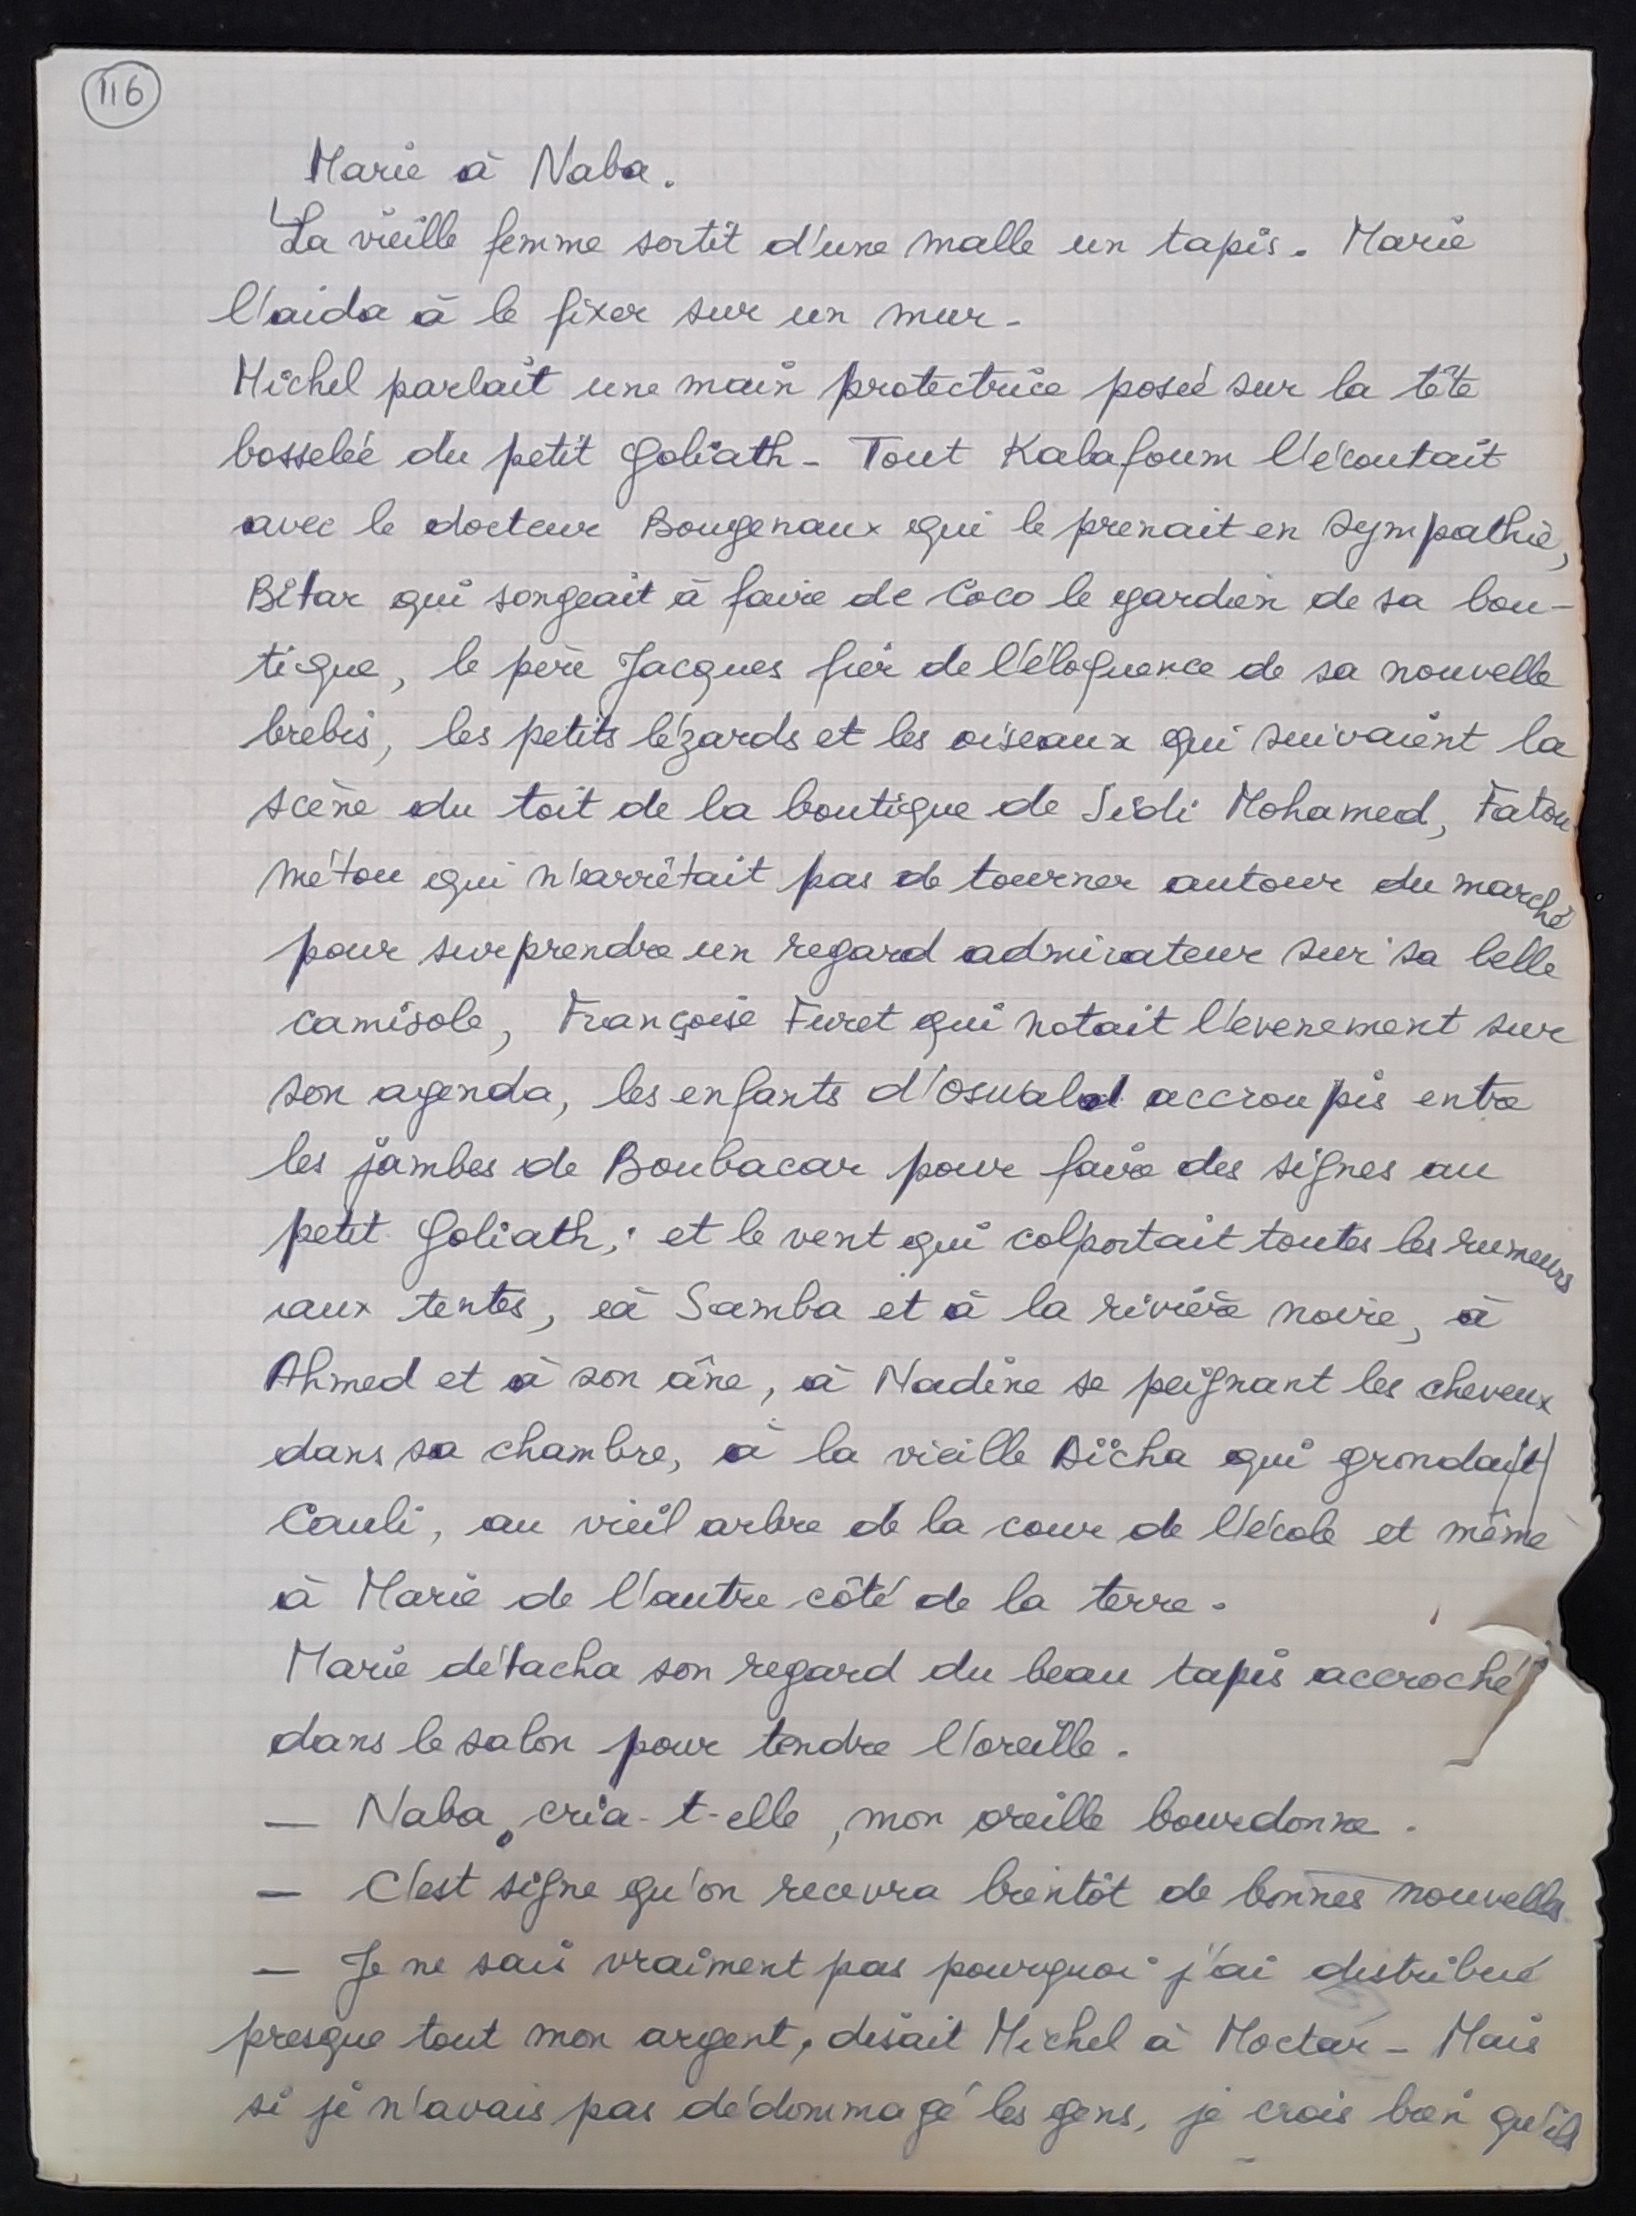 116
Marie à Naba.
La vieille femme sortit d'une malle un tapis. Marie
l'aida à le fixer sur un mur -
Michel parlait une main protectrice posée sur la tête
bosselée du petit Goliath - Tout Kalafoum l'écoutait
avec le docteur Bougenaux qui le prenait en sympathie,
Bitar qui songeait à faire de Coco le gardien de sa bou-
tique, le père Jacques fier de l'éloquence de sa nouvelle
brebis, les petits lézards et les oiseaux qui suivaient la
scène du toit de la boutique de Sidi Mohamed, Fatou
métou qui n'arrêtait pas de tourner autour du marché
pour surprendre un regard admirateur sur sa belle
camisole, Françoise Furet qui notait l'évenement sur
son agenda, les enfants d'Oswald accroupis entre
les jambes de Boubacar pour faire des signes au
petit Goliath ; et le vent qui colportait toutes les rumeurs
aux tentes, à Samba et à la rivière noire, à
Ahmed et à son âne, à Nadine se peignant les cheveux
dans sa chambre, à la vieille Aïcha qui grondait
Cauli, au vieil arbre de la cour de l'école et même
à Marie de l'autre côté de la terre.
Marie détacha son regard du beau tapis accroché
dans le salon pour tendre l'oreille.
— Naba, cria-t-elle, mon oreille bourdonne.
— C'est signe qu'on recevra bientôt de bonnes nouvelles.
— Je ne sais vraiment pas pourquoi j'ai distribué
presque tout mon argent, disait Michel à Moctar - Mais
si je n'avais pas dédommagé les gens, je crois bien qu'ils